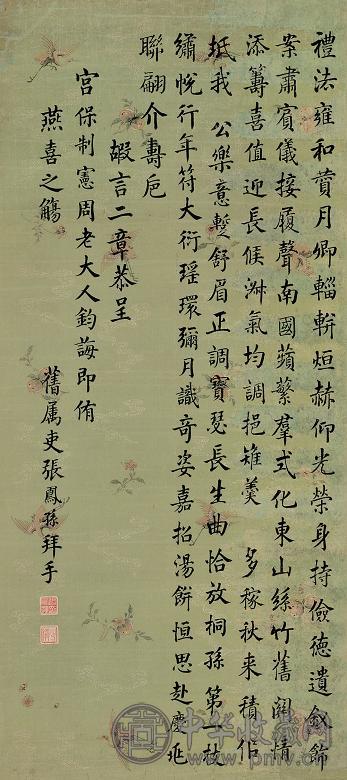 禮法雍和賁月卿輜軿烜赫仰光榮身持儉德遺釵飾
案肅賓儀接履聲南國蘋蘩羣式化東山絲竹舊關情
添籌喜值迎長候淋氣均調挹雉羹 多稼秋来積佰
坻我 公樂意蹔舒眉正調寶瑟長生曲恰放桐孫第一枝
繡帨行年符大衍瑶環彌月識奇姿嘉招湯餅恒思赴慶兆
聯翩介壽卮
嘏言二章恭呈
宫保制憲周老大人鈞誨即侑
燕喜之觴
舊属吏張鳳孫拜手
中华收藏网
www.pmtv.cn